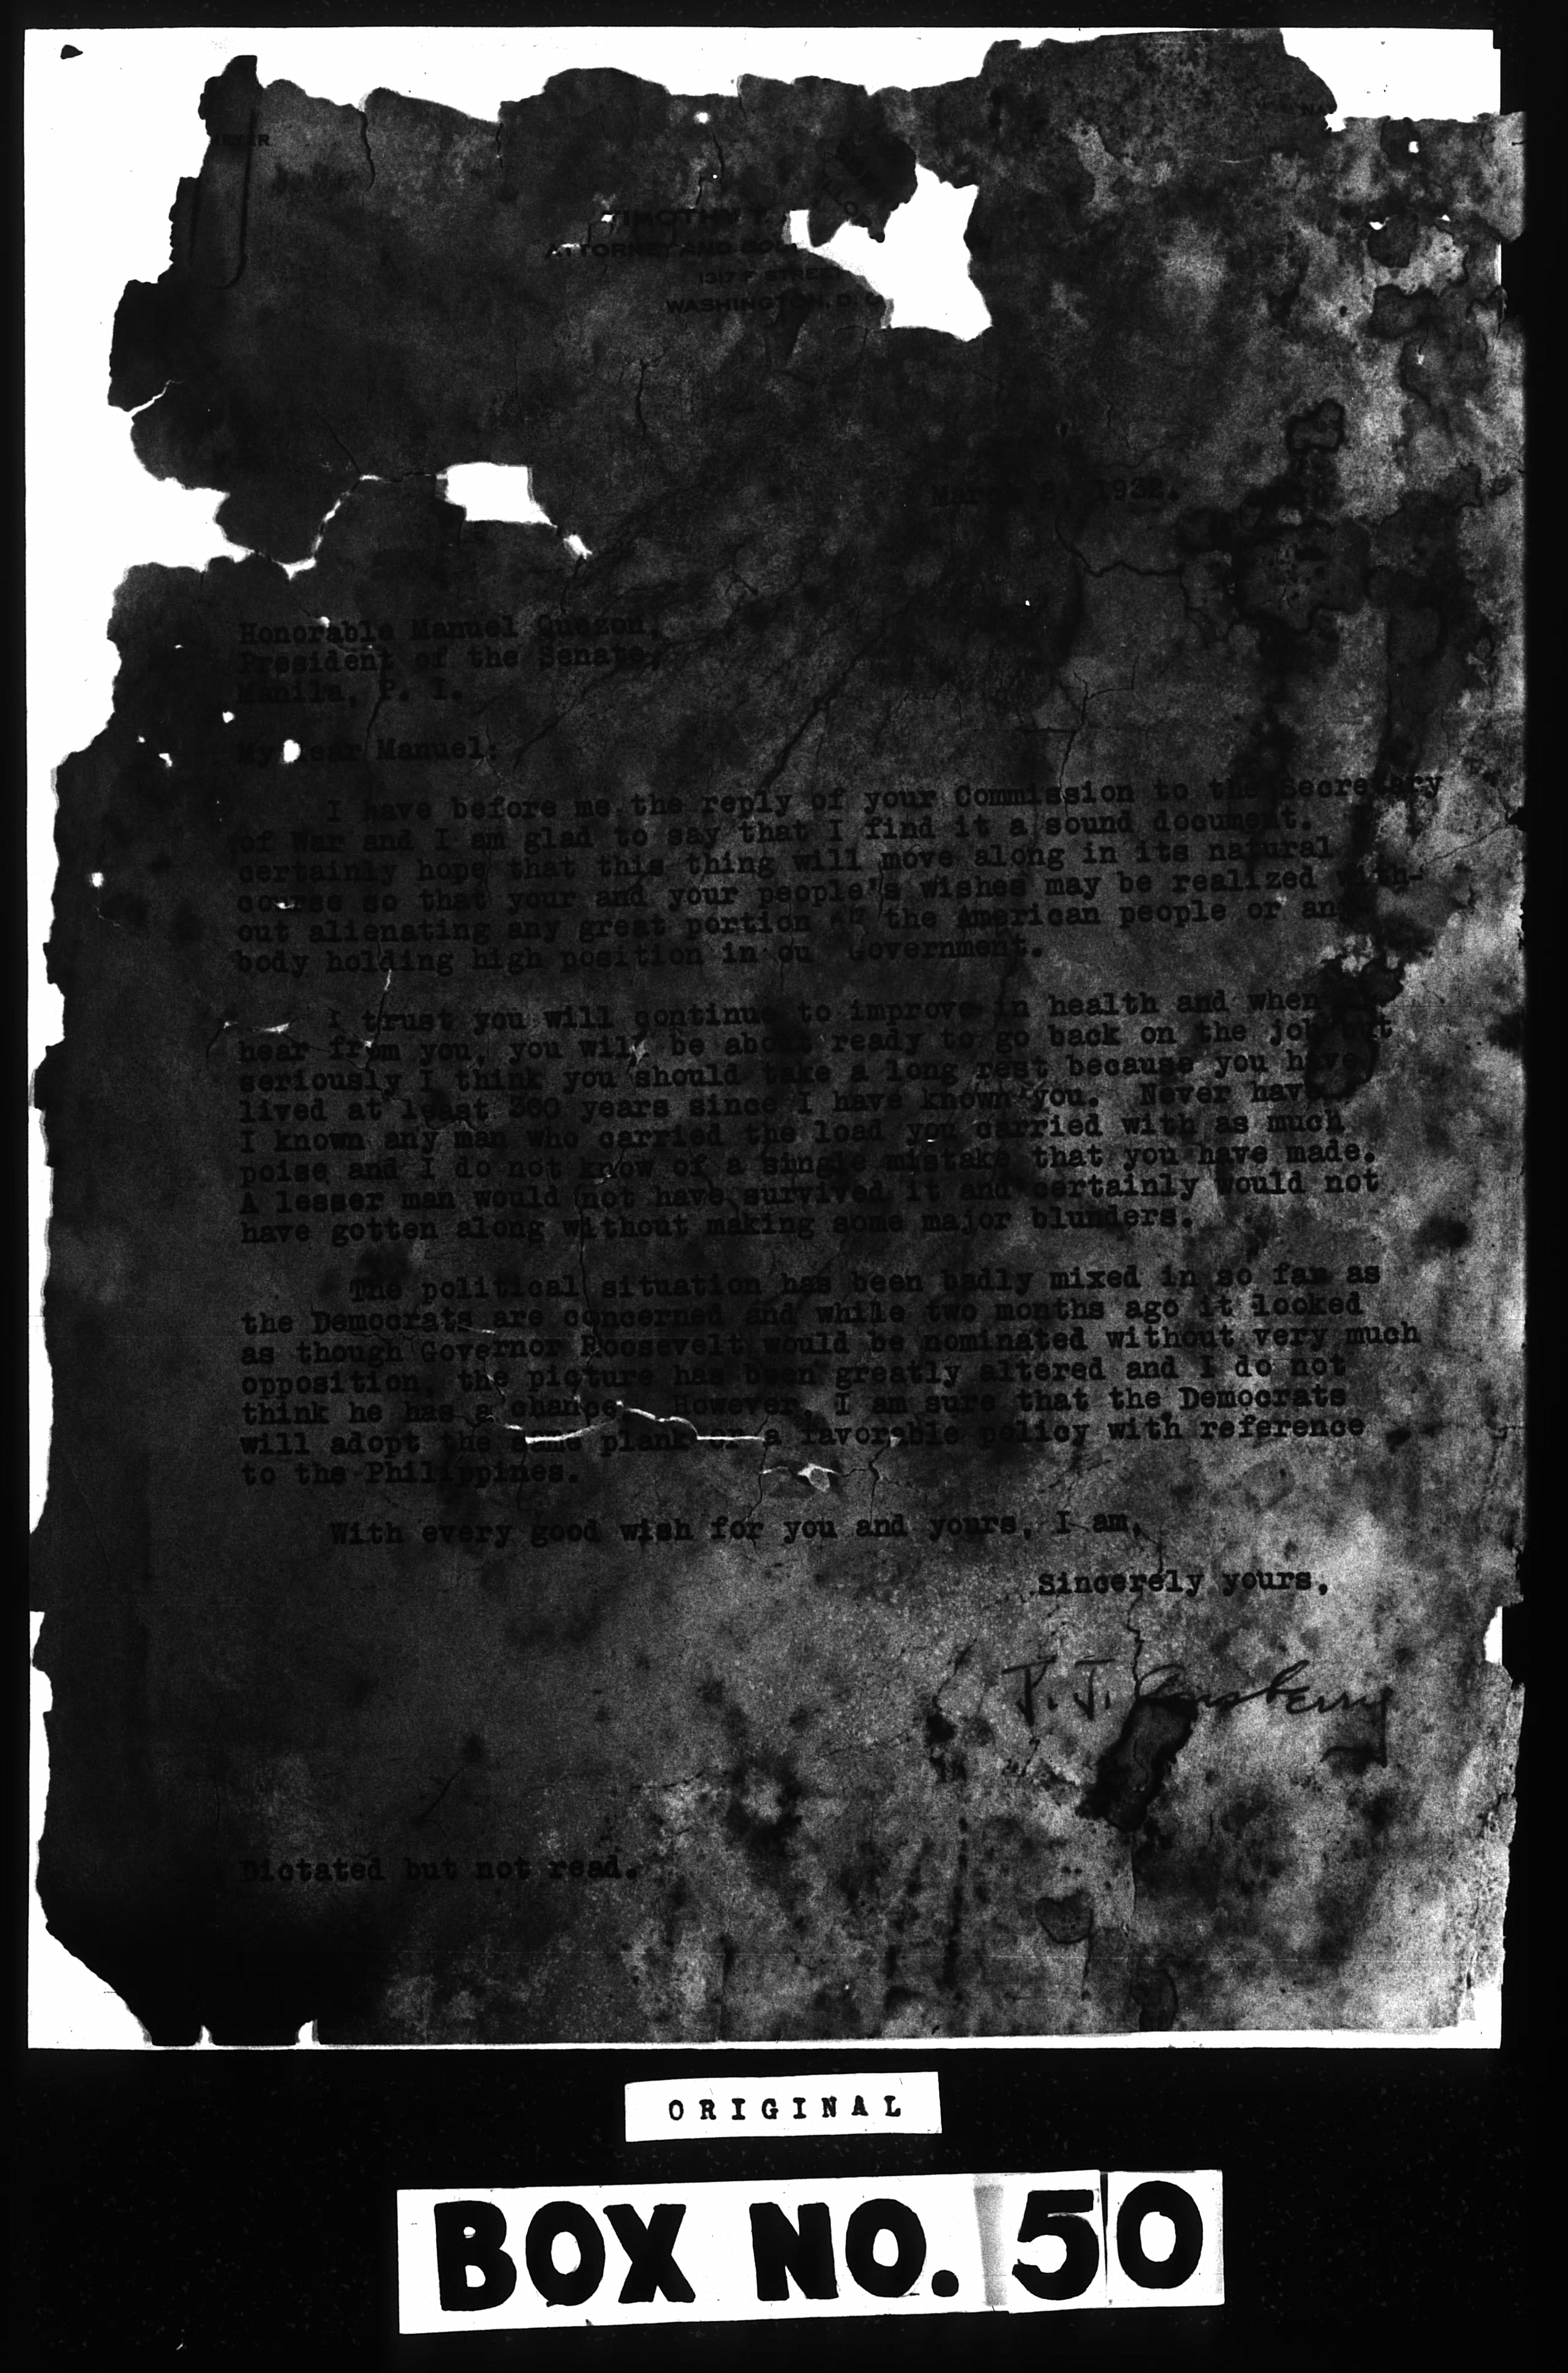 TIMOTHY T.
ATTORNEY AND COU
1317 F STREET
WASHINGTON, D. C.
1932.
Honorable Manuel Quezon,
President of the Senate,
Manila, P. I.
My dear Manuel:
I have before me the reply of your Commission to the Secretary
of War and I am glad to say that I find it a sound document.
certainly hope that this thing will move along in its natural
course so that your and your people's wishes may be realized with-
out alienating any great portion of the American people or any
body holding high position in ou Government.
I trust you will continue to improve in health and when
hear from you, you will be about ready to go back on the job but
seriously I think you should take a long rest because you have
lived at least 360 years since I have known you. Never have
I known any man who carried the load you carried with as much
poise and I do not know of a single mistake that you have made.
A lesser man would not have survived it and certainly would not
have gotten along without making some major blunders.
The political situation has been badly mixed in so far as
the Democrats are concerned and while two months ago it looked
as though Governor Roosevelt would be nominated without very much
opposition, the picture has been greatly altered and I do not
think he has a chance. However, I am sure that the Democrats
will adopt the same plank or a favorable policy with reference
to the Philippines.
With every good wish for you and yours, I am,
Sincerely yours,
T. T. Ansberry
Dictated but not read.
ORIGINAL
BOX NO. 50